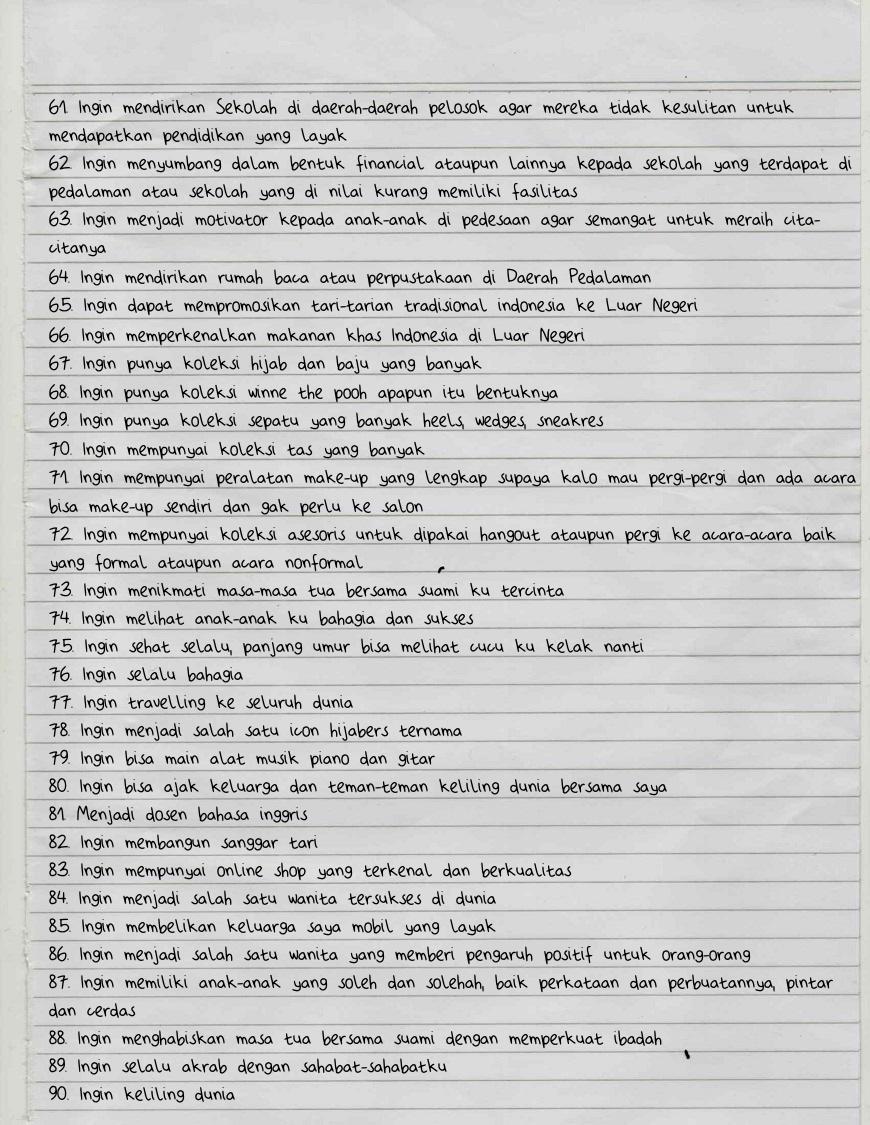 61. Ingin mendirikan Sekolah di daerah-daerah pelosok agar mereka tidak kesulitan untuk
mendapatkan pendidikan yang layak
62. Ingin menyumbang dalam bentuk financial ataupun lainnya kepada sekolah yang terdapat di
pedalaman atau sekolah yang di nilai kurang memiliki fasilitas
63. Ingin menjadi motivator kepada anak-anak di pedesaan agar semangat untuk meraih cita-
citanya
64. Ingin mendirikan rumah baca atau perpustakaan di Daerah Pedalaman
65. Ingin dapat mempromosikan tari-tarian tradisional indonesia ke Luar Negeri
66. Ingin memperkenalkan makanan khas Indonesia di Luar Negeri
67. Ingin punya koleksi hijab dan baju yang banyak
68. Ingin punya koleksi winne the pooh apapun itu bentuknya
69. Ingin punya koleksi sepatu yang banyak heels, wedges, sneakres
70. Ingin mempunyai koleksi tas yang banyak
71. Ingin mempunyai peralatan make-up yang lengkap supaya kalo mau pergi-pergi dan ada acara
bisa make-up sendiri dan gak perlu ke salon
72. Ingin mempunyai koleksi asesoris untuk dipakai hangout ataupun pergi ke acara-acara baik
yang formal ataupun acara nonformal
73. Ingin menikmati masa-masa tua bersama suami ku tercinta
74. Ingin melihat anak-anak ku bahagia dan sukses
75. Ingin sehat selalu, panjang umur bisa melihat cucu ku kelak nanti
76. Ingin selalu bahagia
77. Ingin travelling ke seluruh dunia
78. Ingin menjadi salah satu icon hijabers ternama
79. Ingin bisa main alat musik piano dan gitar
80. Ingin bisa ajak keluarga dan teman-teman keliling dunia bersama saya
81. Menjadi dosen bahasa inggris
82. Ingin membangun sanggar tari
83. Ingin mempunyai online shop yang terkenal dan berkualitas
84. Ingin menjadi salah satu wanita tersukses di dunia
85. Ingin membelikan keluarga saya mobil yang layak
86. Ingin menjadi salah satu wanita yang memberi pengaruh positif untuk orang-orang
87. Ingin memiliki anak-anak yang soleh dan solehah, baik perkataan dan perbuatannya, pintar
dan cerdas
88. Ingin menghabiskan masa tua bersama suami dengan memperkuat ibadah
89. Ingin selalu akrab dengan sahabat-sahabatku
90. Ingin keliling dunia